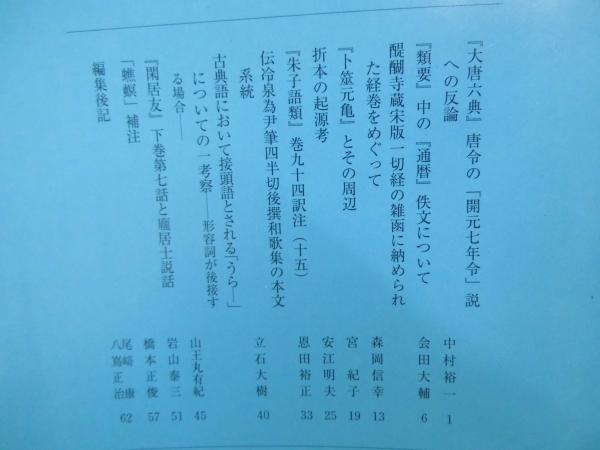 『大唐六典』唐令の「開元七年令」説
への反論
中村裕一 1
『類要』中の『通暦』佚文について
会田大輔 6
醍醐寺蔵宋版一切経の雑函に納められ
た経巻をめぐって
森岡信幸 13
『卜筮元亀』とその周辺
宮紀子 19
折本の起源考
安江明夫 25
『朱子語類』巻九十四訳注（十五）
恩田裕正 33
伝冷泉為尹筆四半切後撰和歌集の本文
系統
立石大樹 40
古典語において接頭語とされる「うら―」
についての一考察――形容詞が後接す
る場合――
山王丸有紀 45
『閑居友』下巻第七話と龐居士説話
岩山泰三 51
「蟭螟」補注
橋本正俊 57
編集後記
尾崎康
八嶌正治 62